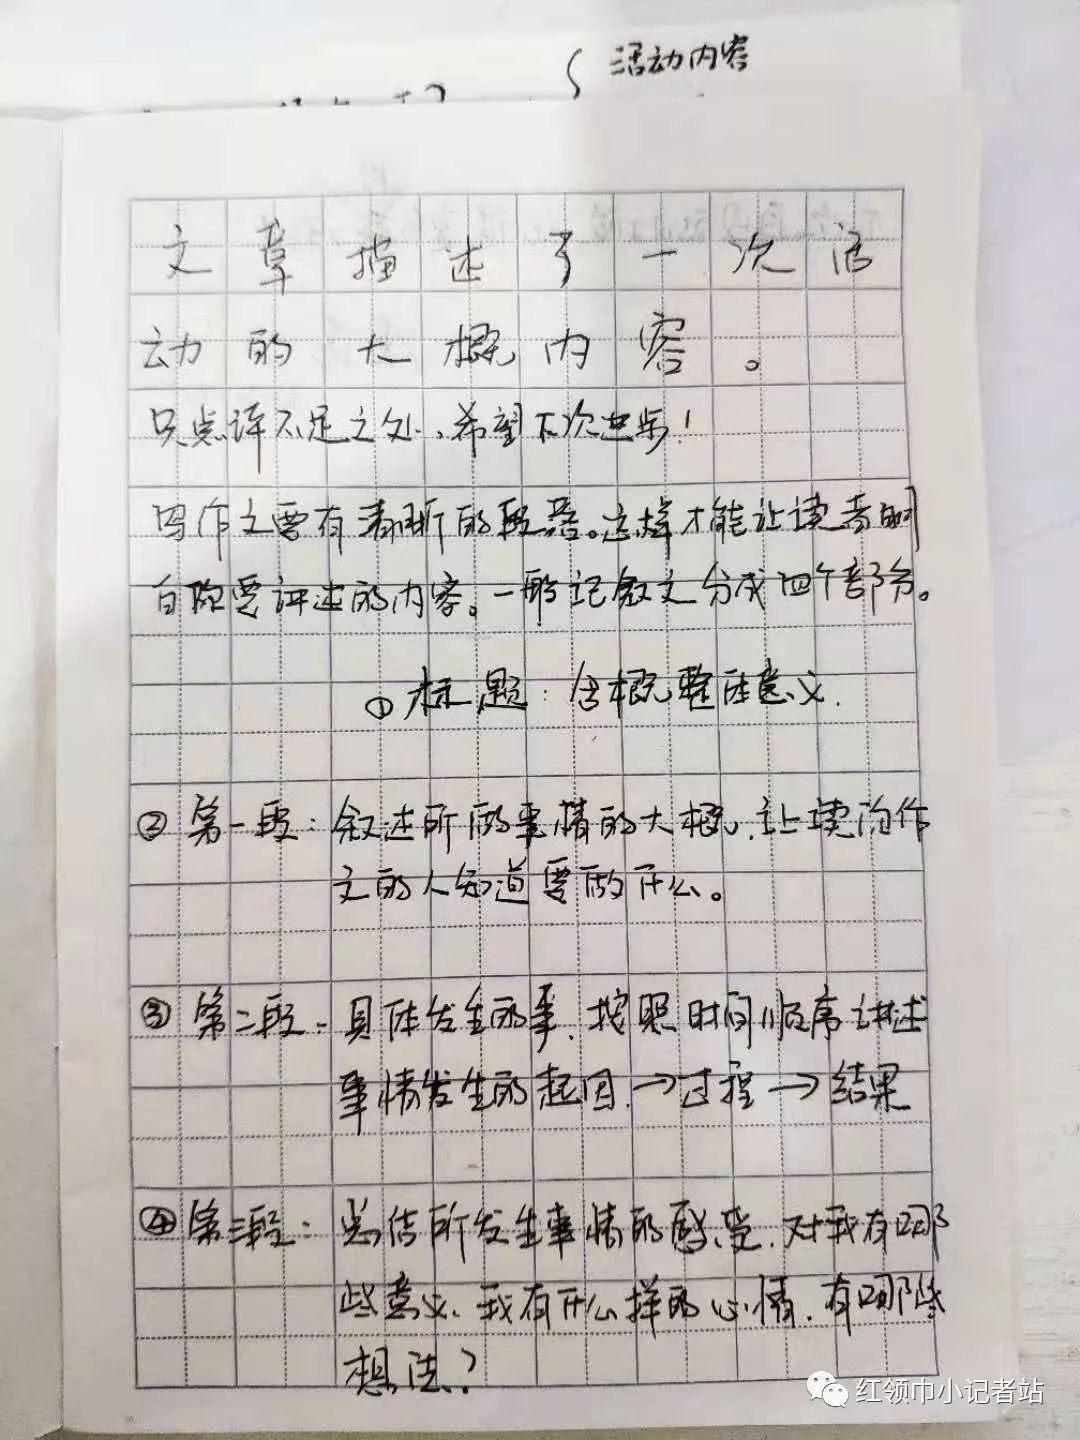 活动内容
文章描述了一次活
动的大概内容。
只点评不足之处,希望下次进步!
写作文要有清晰的段落。这样才能让读者明
白你要评述的内容。一般记叙文分成四个部分。
①标题:含概整体意义.
②第一段:叙述所做事情的大概,让读你作
文的人知道要做什么。
③第二段-具体发生的事,按照时间顺序讲述
事情发生的起因.→过程→结果
④第三段:总结所发生事情的感受,对我有哪
些意义、我有什么样的心情.有哪些
想法?
红领巾小记者站